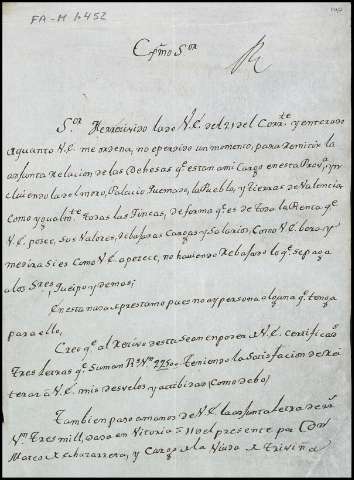 FA-M 1.452
Exmo Sor
R
Sor He rrecivido la de V.E. del 21 del Corrte y enterado
de quanto V.E. me ordena, no eperdido un momento, para Remitir la
adjunta Relacion de las Dehesas qe estan ami Cargo enesta Prova, yn
cluiendo la del moro, Palacio Quemado, la Puebla, y tierras de Valencia,
Como ygualmte todas las fincas, de forma qe es de toda la Renta qe
V.E. posee, sus Valores, Rebajas Cargas y Salarios, Como V.E. bera y
medira si es Como V.E. apetece, no haviendo Rebajado lo qe se paga
a los Sres Queipo y demas;
En esta no ai eprestamo pues no ay persona alguna qe tenga
para ello,
Creo qe al Recivo desta sean en poder de V.E. Certificads
Tres letras qe Suman Rs Vn 2250. Teniendo la Satisfacion de Rei
terar a V.E. mis desvelos y actibidad Como debo,
Tambien paso amanos de V.E. la adjunta letra de
Vn Tres mill, dada en Vitoria a 11 del presente por Dn
Marco de chavarrera, y Cargo de la Viuda de Triviña